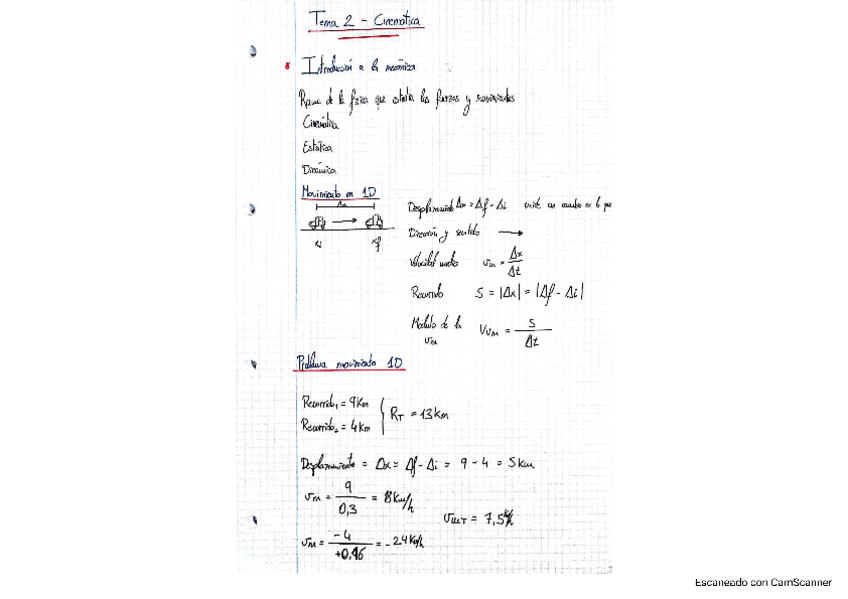 Tema 2 - Cinemática
* Introducción a la mecánica
Rama de la física que estudia las fuerzas y movimientos
Cinemática
Estática
Dinámica
Movimiento en 1D
Δx
xi xf
Desplazamiento Δx = Δf - Δi
Dirección y sentido →
Velocidad media vm = Δx / Δt
Recorrido S = |Δx| = |Δf - Δi|
Módulo de la vm = S / Δt
Problema movimiento 1D
Recorrido₁ = 9 Km
Recorrido₂ = 4 km
RT = 13 km
Desplazamiento = Δx = Δf - Δi = 9 - 4 = 5 km
vm = 9 / 0,3 = Km/h
= 7,5
vm = -4 / = - 24 Km/h
Escaneado con CamScanner